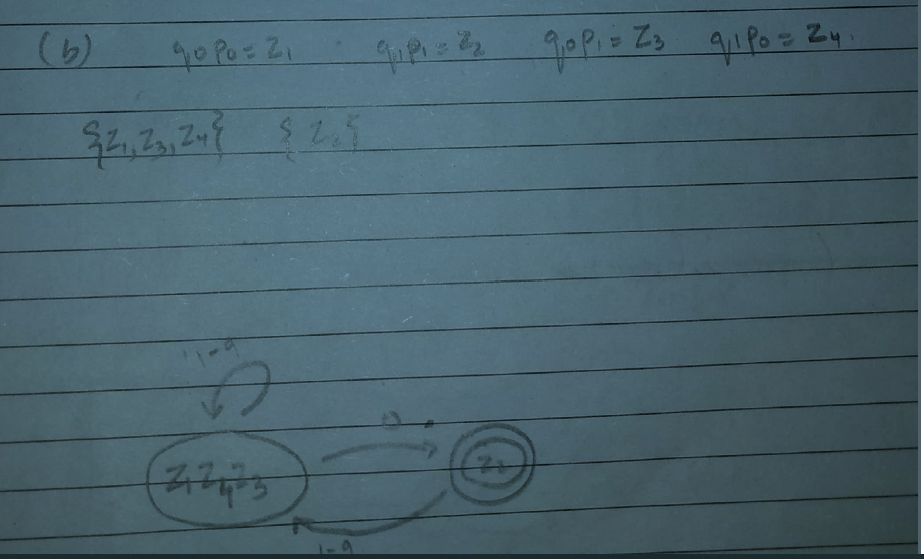 (b) q0p0 = Z1 q1p1 = Z2 q0p1 = Z3 q1p0 = Z4
{Z1, Z3, Z4} { Z2 }
1-9
0
Z1 Z4 Z3 Z2
1-9